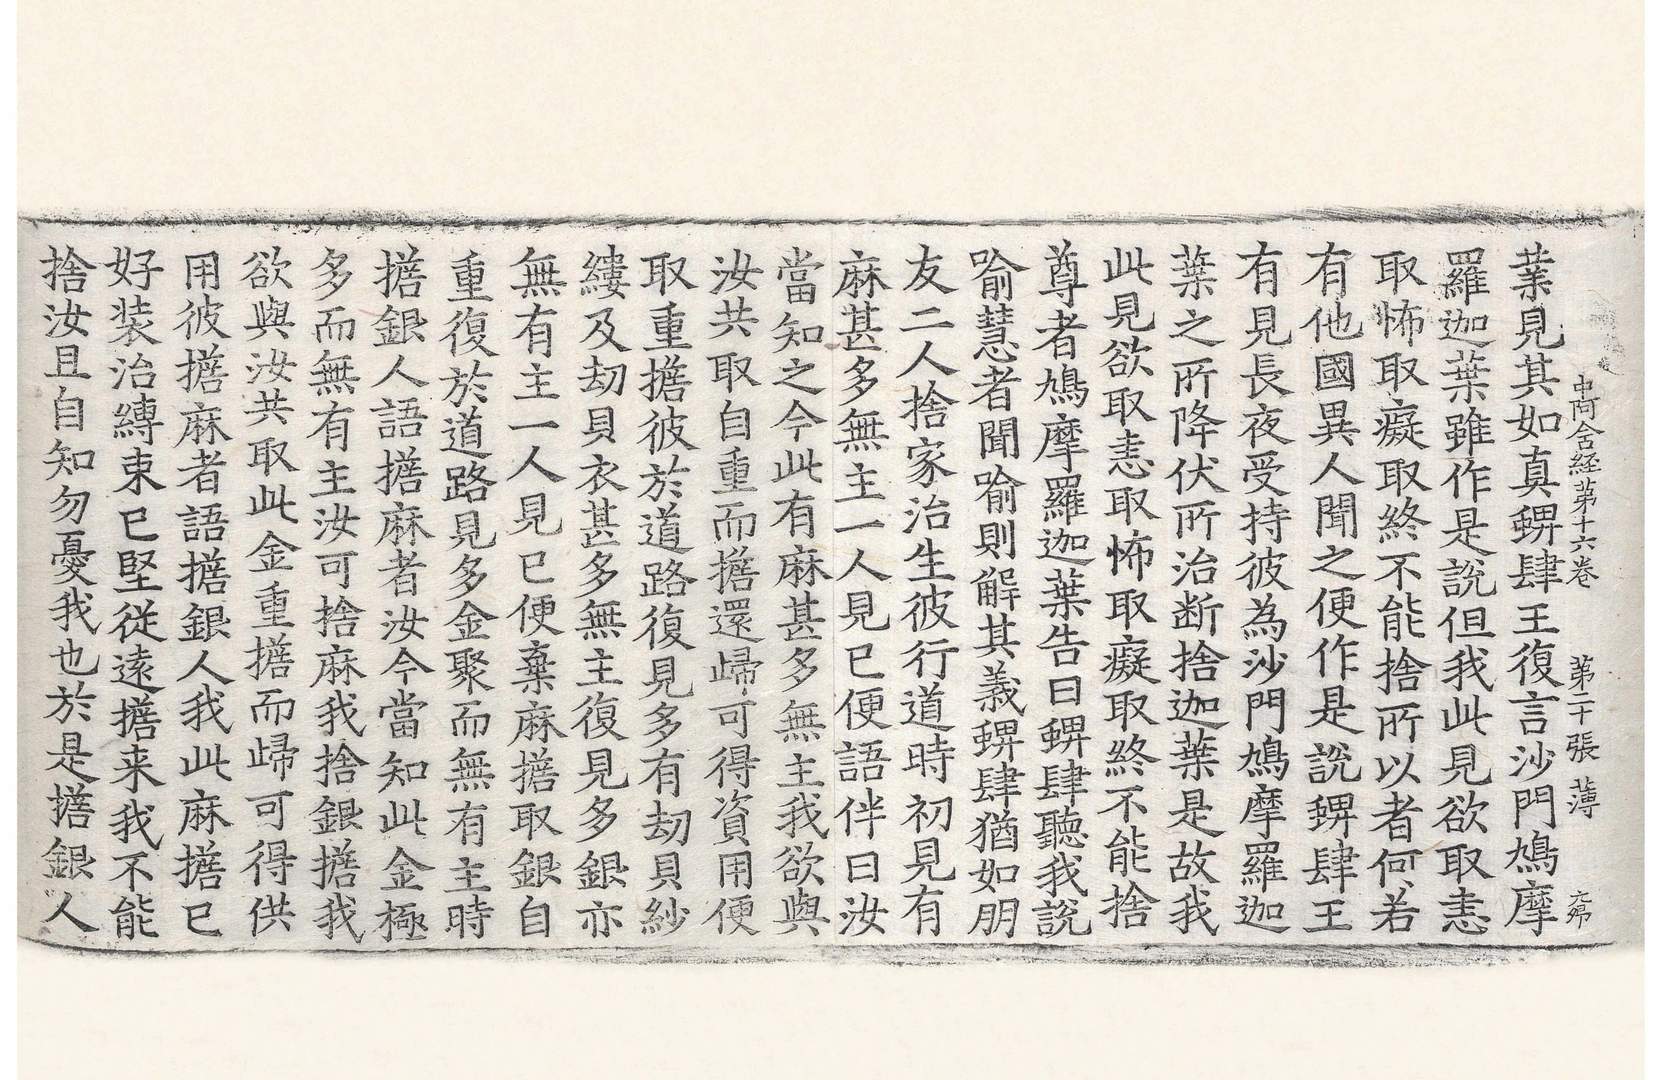 中阿含経第十六巻 第二十張 薄
業見其如真蜱肆王復言沙門鳩摩
羅迦葉雖作是說但我此見欲取恚
取怖取癡取終不能捨所以者何若
有他國異人聞之便作是說蜱肆王
有見長夜受持彼為沙門鳩摩羅迦
葉之所降伏所治断捨迦葉是故我
此見欲取恚取怖取癡取終不能捨
尊者鳩摩羅迦葉告曰蜱肆聽我說
喻慧者聞喻則解其義蜱肆猶如朋
友二人捨家治生彼行道時初見有
麻甚多無主一人見已便語伴曰汝
當知之今此有麻甚多無主我欲與
汝共取自重而擔還歸可得資用便
取重擔彼於道路復見多有劫貝紗
縷及劫貝衣甚多無主復見多銀亦
無有主一人見已便棄麻擔取銀自
重復於道路見多金聚而無有主時
擔銀人語擔麻者汝今當知此金極
多而無有主汝可捨麻我捨銀擔我
欲與汝共取此金重擔而歸可得供
用彼擔麻者語擔銀人我此麻擔已
好装治縛束已堅從遠擔来我不能
捨汝且自知勿憂我也於是擔銀人